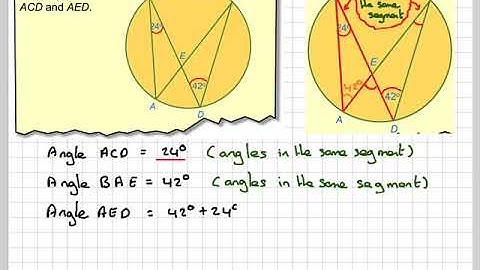 ACD and AED.
24°
E
42°
A
D
the same
segment
24°
E
42°
42°
A
D
Angle ACD = 24° (angles in the same segment)
Angle BAE = 42° (angles in the same segment)
Angle AED = 42° + 24°